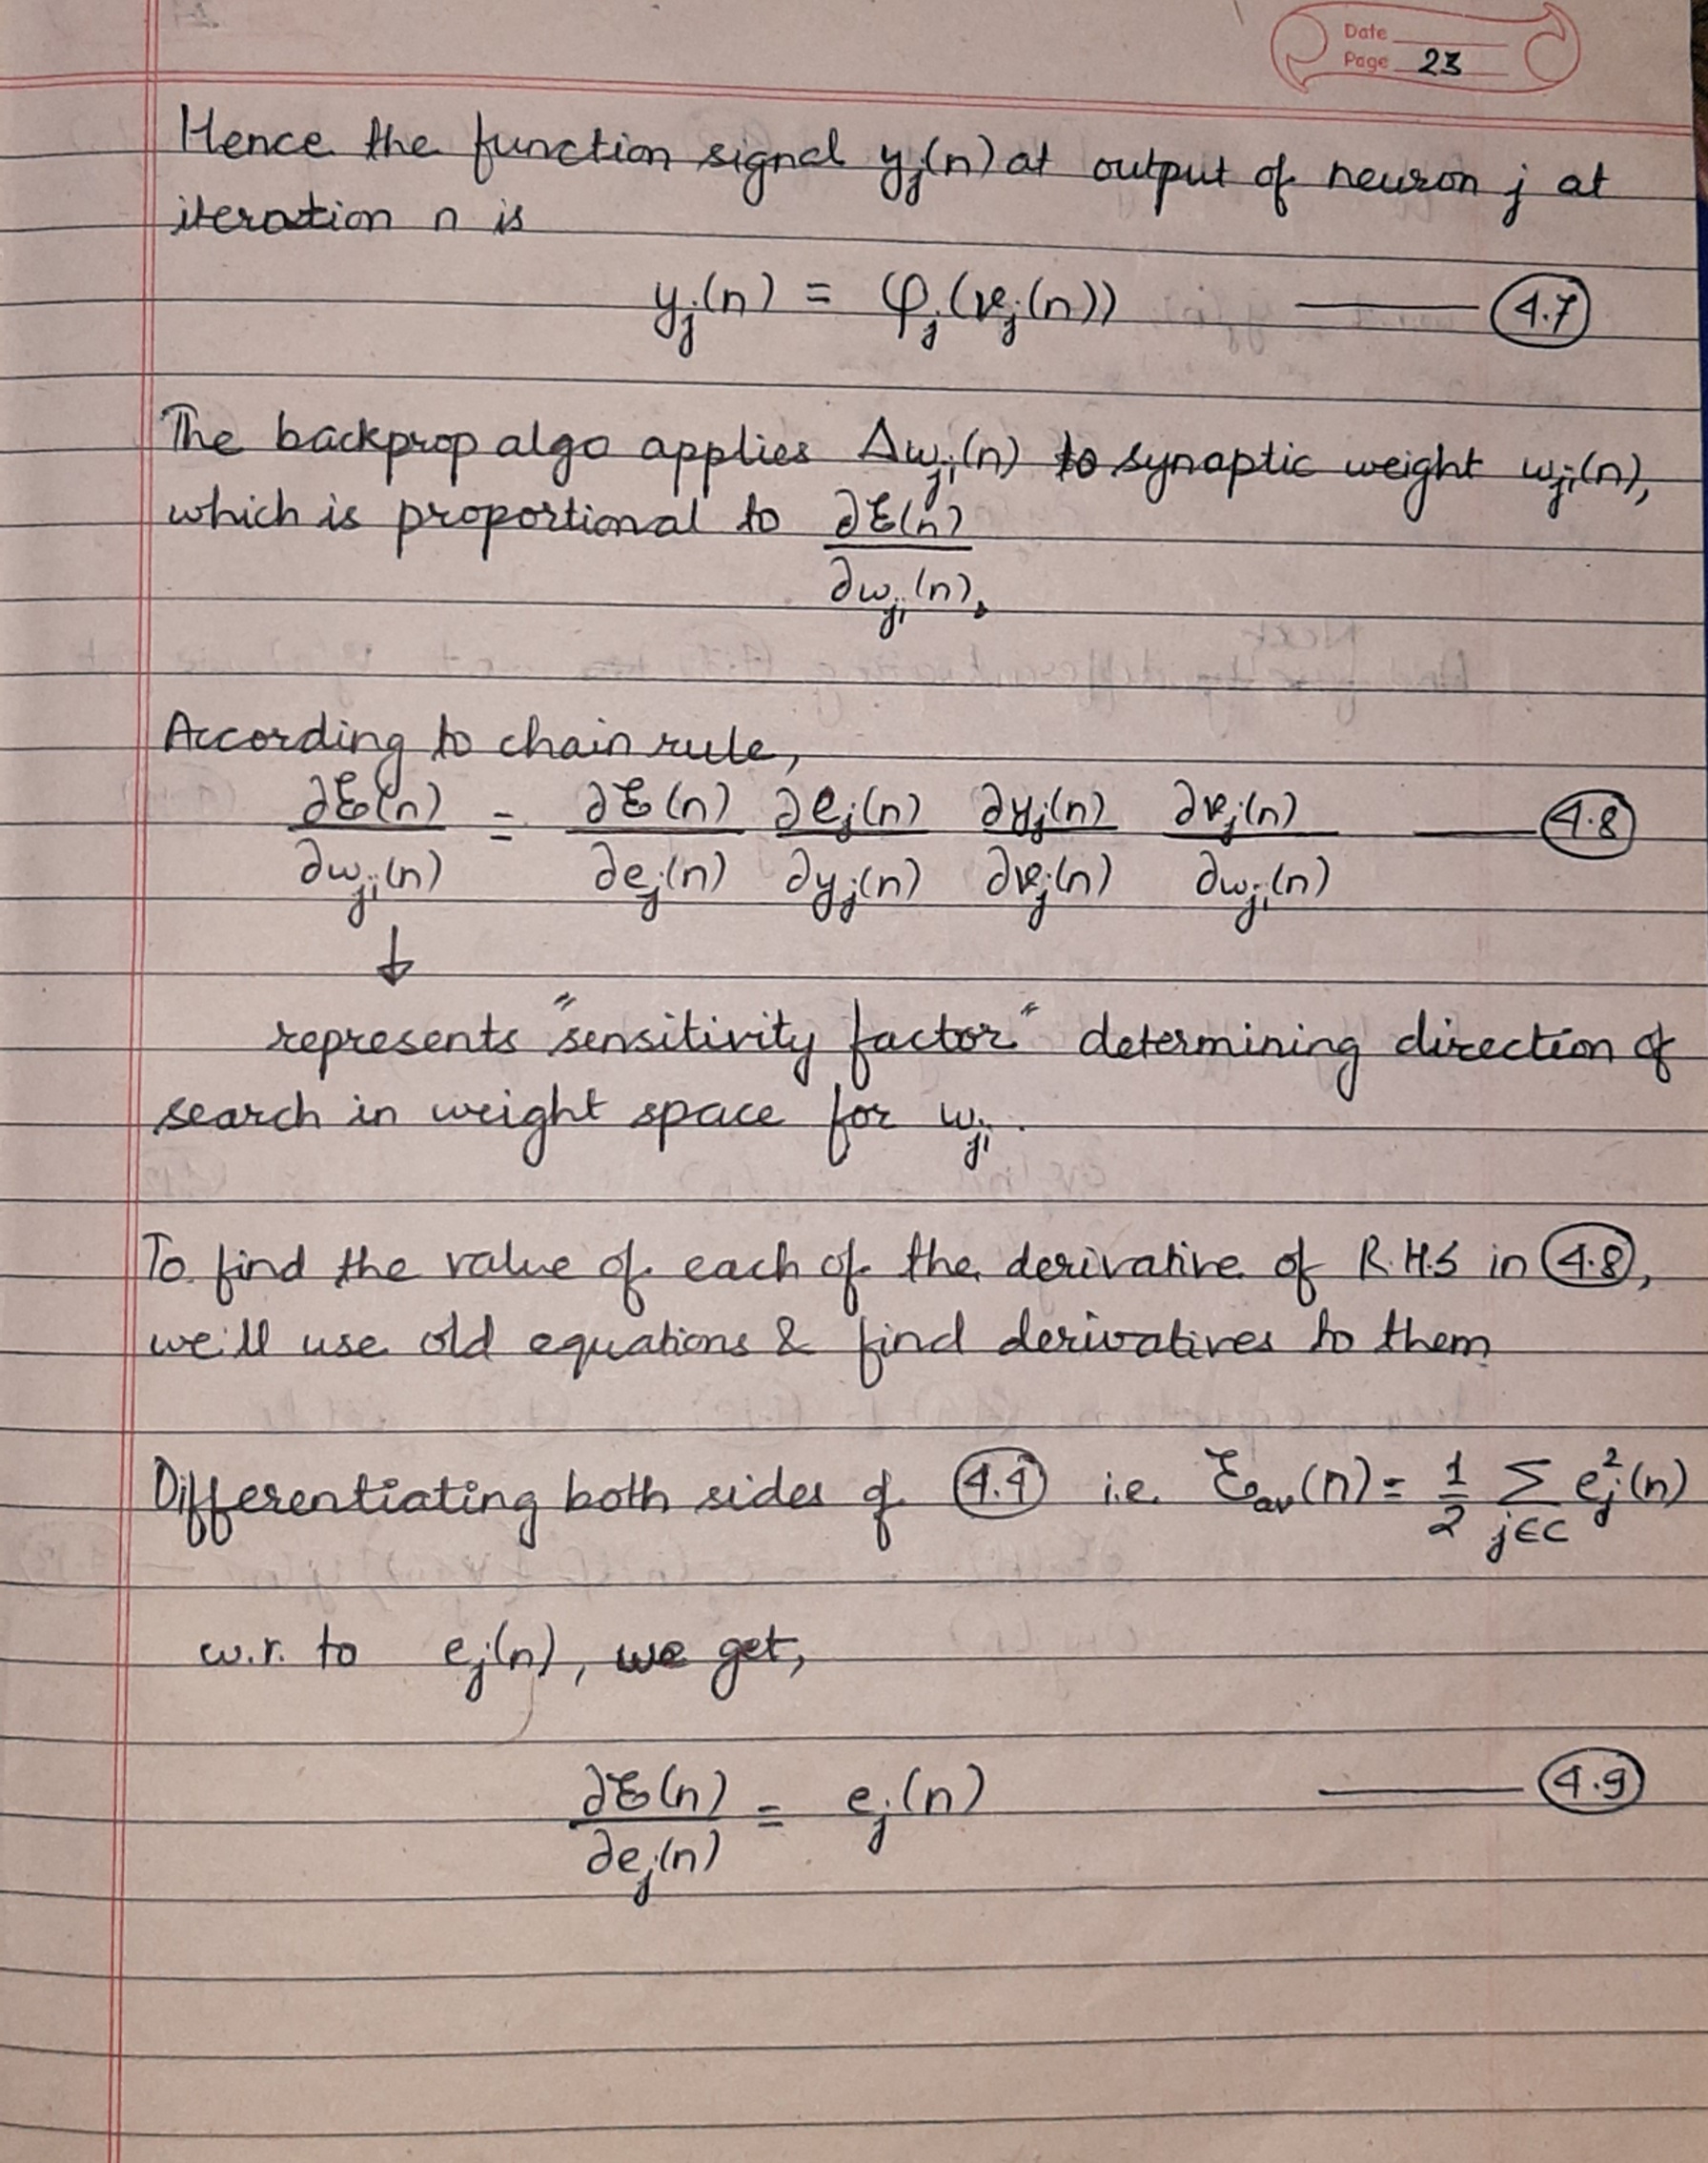 Date
Page 23
Hence the function signal yⱼ(n) at output of neuron j at
iteration n is
yⱼ(n) = φⱼ(vⱼ(n)) —— 4.7
The backprop algo applies Δwⱼᵢ(n) to synaptic weight wⱼᵢ(n),
which is proportional to ∂ℰ(n)
∂wⱼᵢ(n).
According to chain rule,
∂ℰ(n) = ∂ℰ(n) ∂eⱼ(n) ∂yⱼ(n) ∂vⱼ(n) —— 4.8
∂wⱼᵢ(n) ∂eⱼ(n) ∂yⱼ(n) ∂vⱼ(n) ∂wⱼᵢ(n)
↓
represents "sensitivity factor" determining direction of
search in weight space for wⱼᵢ.
To find the value of each of the derivative of R.H.S in 4.8,
we'll use old equations & find derivatives to them
Differentiating both sides of 4.4 i.e. ℰav(n) = 1/2 Σ eⱼ²(n)
j∈C
w.r. to eⱼ(n), we get,
∂ℰ(n) = eⱼ(n) —— 4.9
∂eⱼ(n)